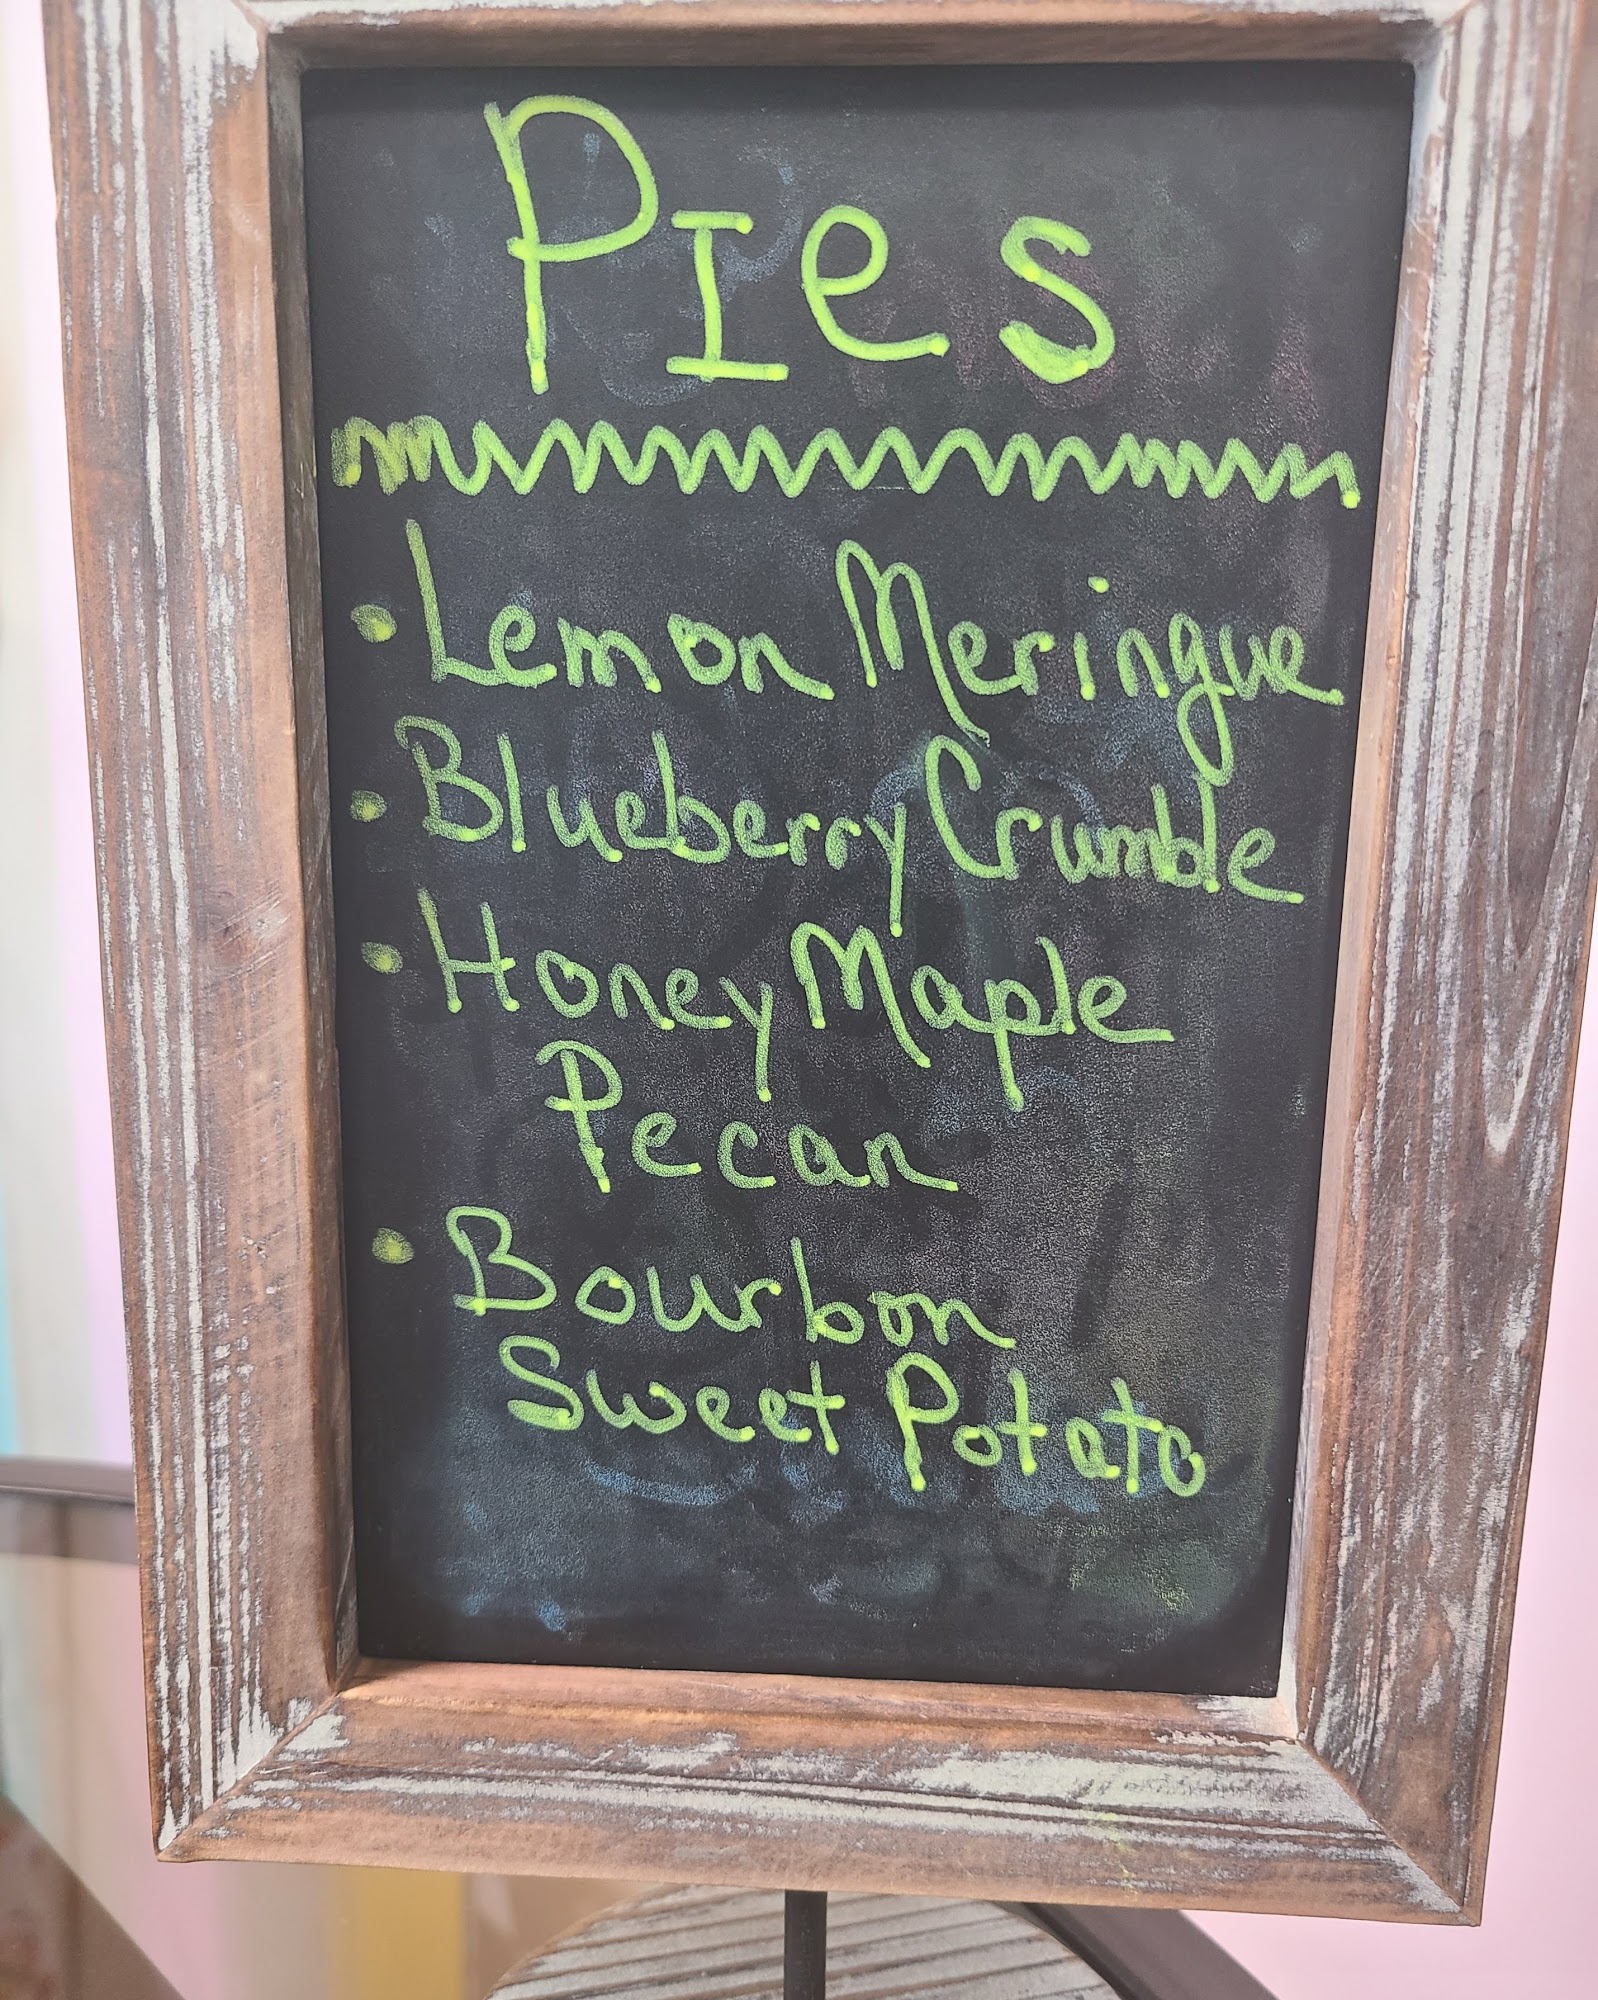 PIes
• Lemon Meringue
• Blueberry Crumble
• Honey Maple
Pecan
• Bourbon
Sweet Potato